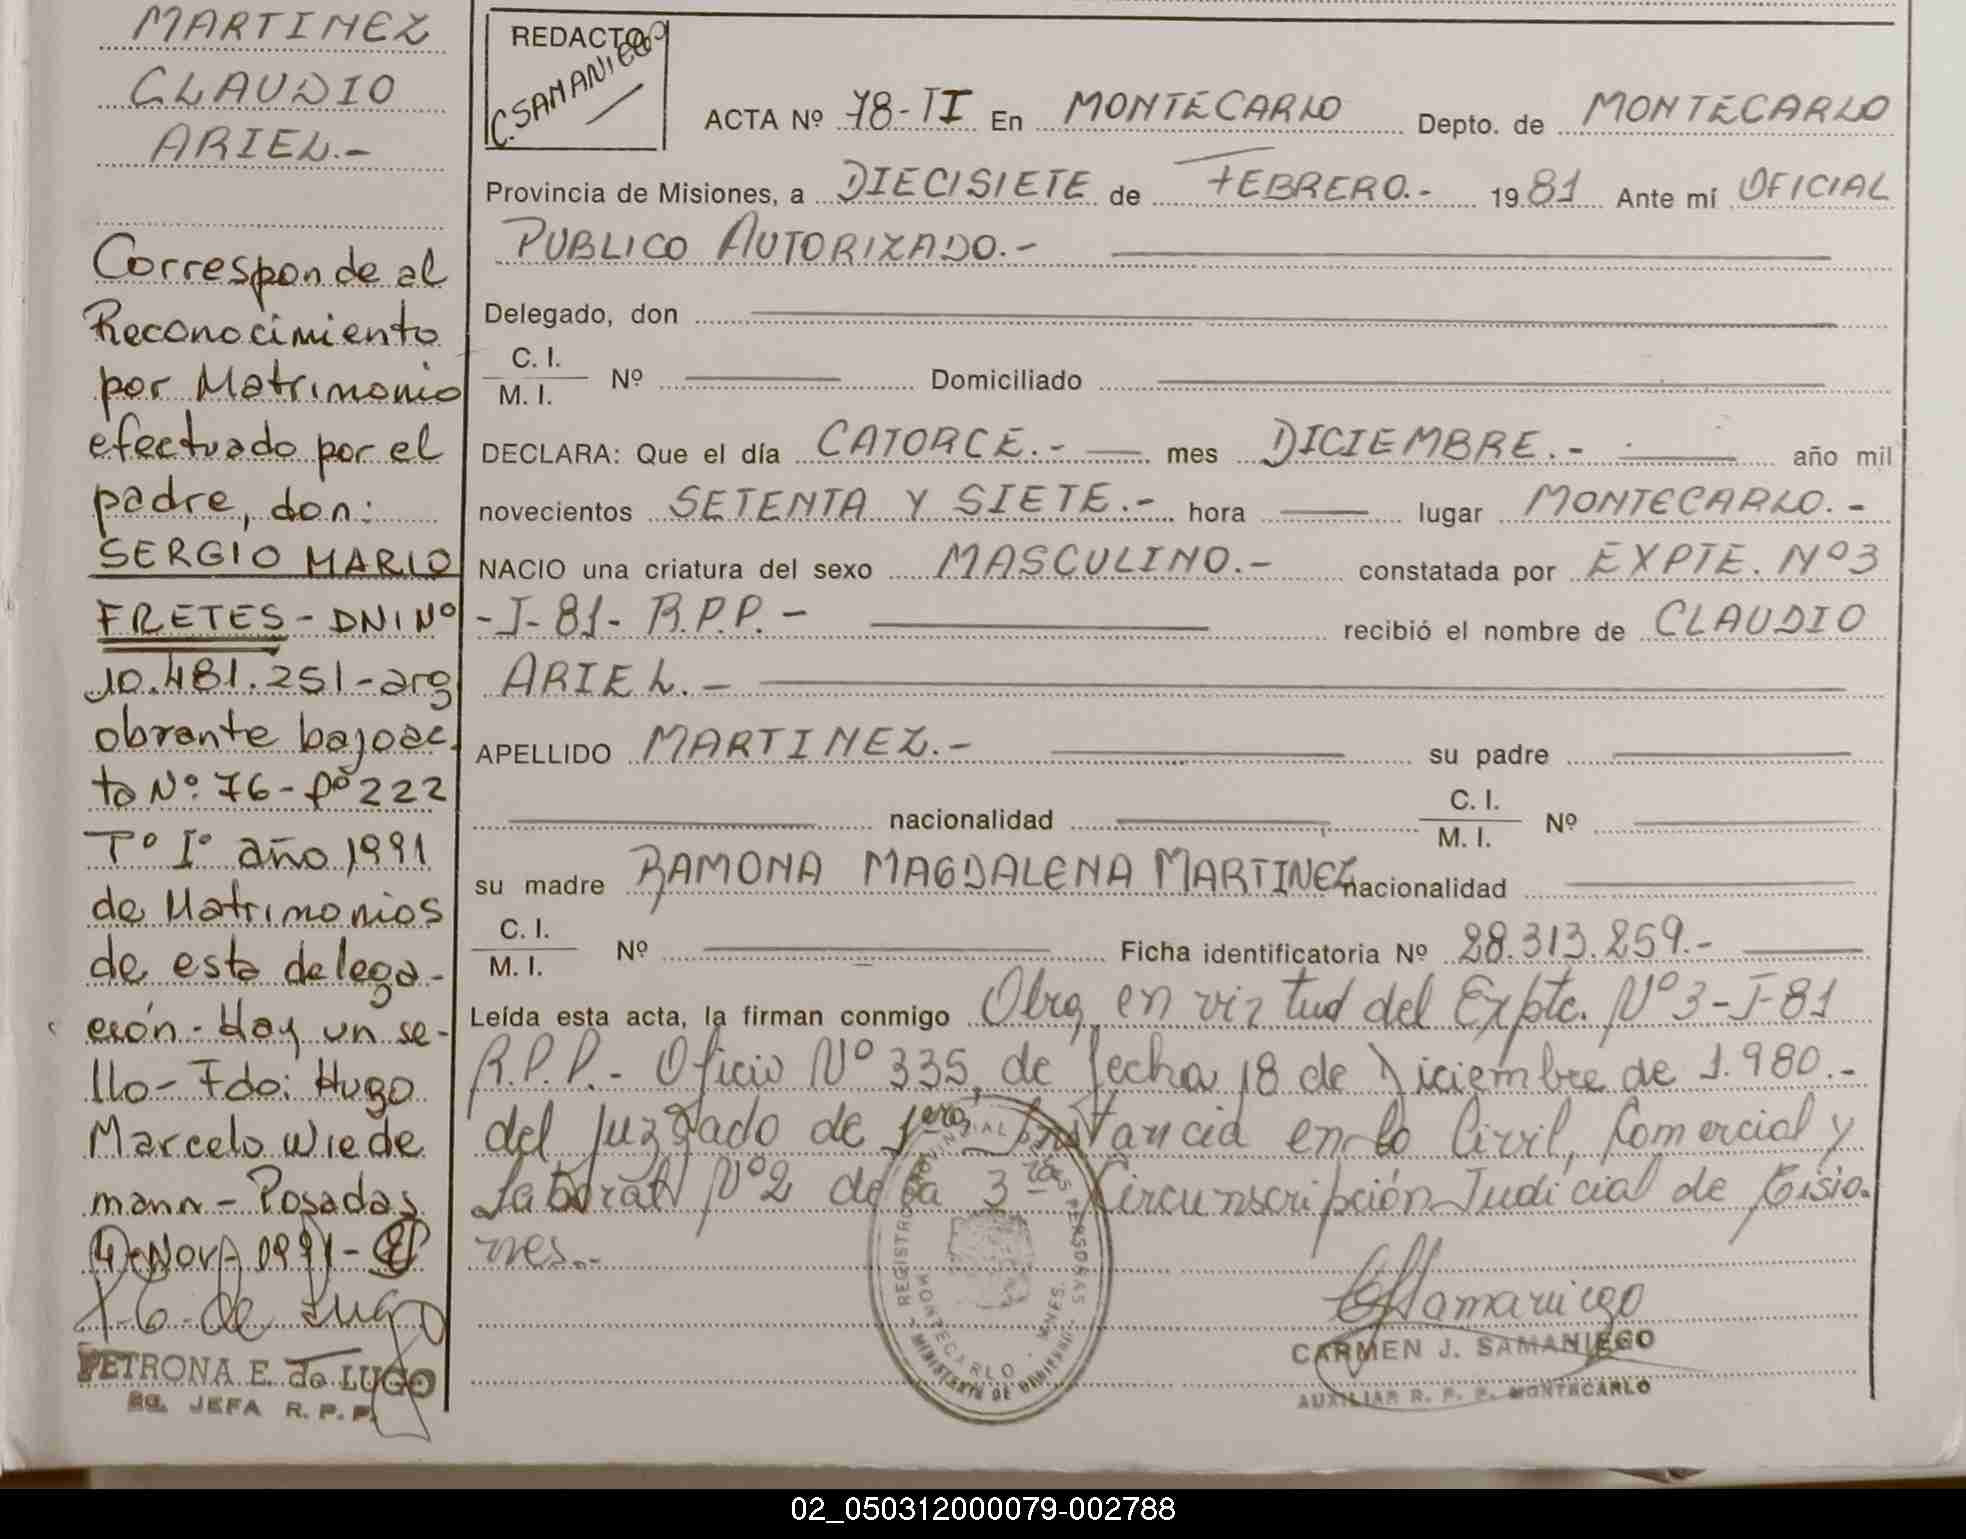 MARTINEZ
CLAUDIO
ARIEL.-
Corresponde al
Reconocimiento
por Matrimonio
efectuado por el
padre, don:
SERGIO MARIO
FRETES - DNI Nº
10.481.251 - arg
obrante bajo ac-
ta Nº 76 - fº 222
Tº Iº año 1991
de Matrimonios
de esta delega-
ción - Hay un se-
llo - Fdo: Hugo
Marcelo Wiede
mann - Posadas
PETRONA E. de LUGO
JEFA R. P. P.
REDACTO
C. SAMANIEGO
ACTA Nº 78-II En MONTECARLO Depto. de MONTECARLO
Provincia de Misiones, a DIECISIETE de FEBRERO.- 1981 Ante mí OFICIAL
PUBLICO AUTORIZADO.-
Delegado, don
C. I.
M. I. Nº Domiciliado
DECLARA: Que el día CATORCE.- mes DICIEMBRE.- año mil
novecientos SETENTA Y SIETE.- hora lugar MONTECARLO.-
NACIO una criatura del sexo MASCULINO.- constatada por EXPTE. Nº 3
-J-81- R.P.P.- recibió el nombre de CLAUDIO
ARIEL.-
APELLIDO MARTINEZ.- su padre
nacionalidad C. I.
M. I. Nº
su madre RAMONA MAGDALENA MARTINEZ nacionalidad
C. I.
M. I. Nº Ficha identificatoria Nº 28.313.259.-
Leída esta acta, la firman conmigo Obra en virtud del Expte. Nº 3-J-81
R.P.P.- Oficio Nº 335, de fecha 18 de Diciembre de 1.980.-
del Juzgado de 1era Instancia en lo Civil, Comercial y
Laboral Nº 2 de la 3ra Circunscripción Judicial de Misio-
nes.-
CSamaniego
CARMEN J. SAMANIEGO
AUXILIAR R. P. P. MONTECARLO
02_050312000079-002788